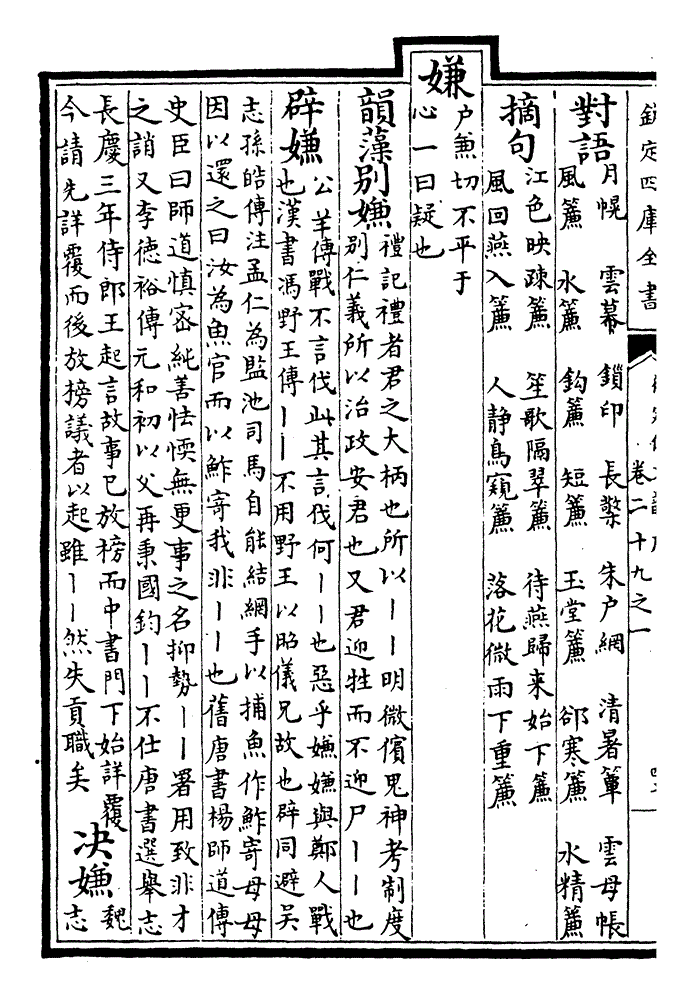 欽定四庫全書
卷二十九之一
對語
月幌 雲幕 鎖印 長檠 朱户網 清暑簟 雲母帳
風簾 水簾 鈎簾 短簾 玉堂簾 郤寒簾 水精簾
摘句
江色映疎簾 笙歌隔翠簾 待燕歸来始下簾
風回燕入簾 人静鳥窺簾 落花微雨下重簾
嫌
户兼切不平于
心一曰疑也
韻藻別嫌
禮記禮者君之大柄也所以丨丨明微儐鬼神考制度
別仁義所以治政安君也又君迎牲而不迎尸丨丨也
辟嫌
公羊傳戰不言伐此其言伐何丨丨也惡乎嫌嫌與鄭人戰
也漢書馮野王傳丨丨不用野王以昭儀兄故也辟同避吳
志孫皓傳注孟仁為監池司馬自能結網手以捕魚作鮓寄母母
因以還之曰汝為魚官而以鮓寄我非丨丨也舊唐書楊師道傳
史臣曰師道慎密純善怯愞無更事之名抑勢丨丨署用致非才
之誚又李德裕傳元和初以父再秉國鈞丨丨不仕唐書選舉志
長慶三年侍郎王起言故事已放榜而中書門下始詳覆
今請先詳覆而後放榜議者以起雖丨丨然失貢職矣
决嫌
魏
志